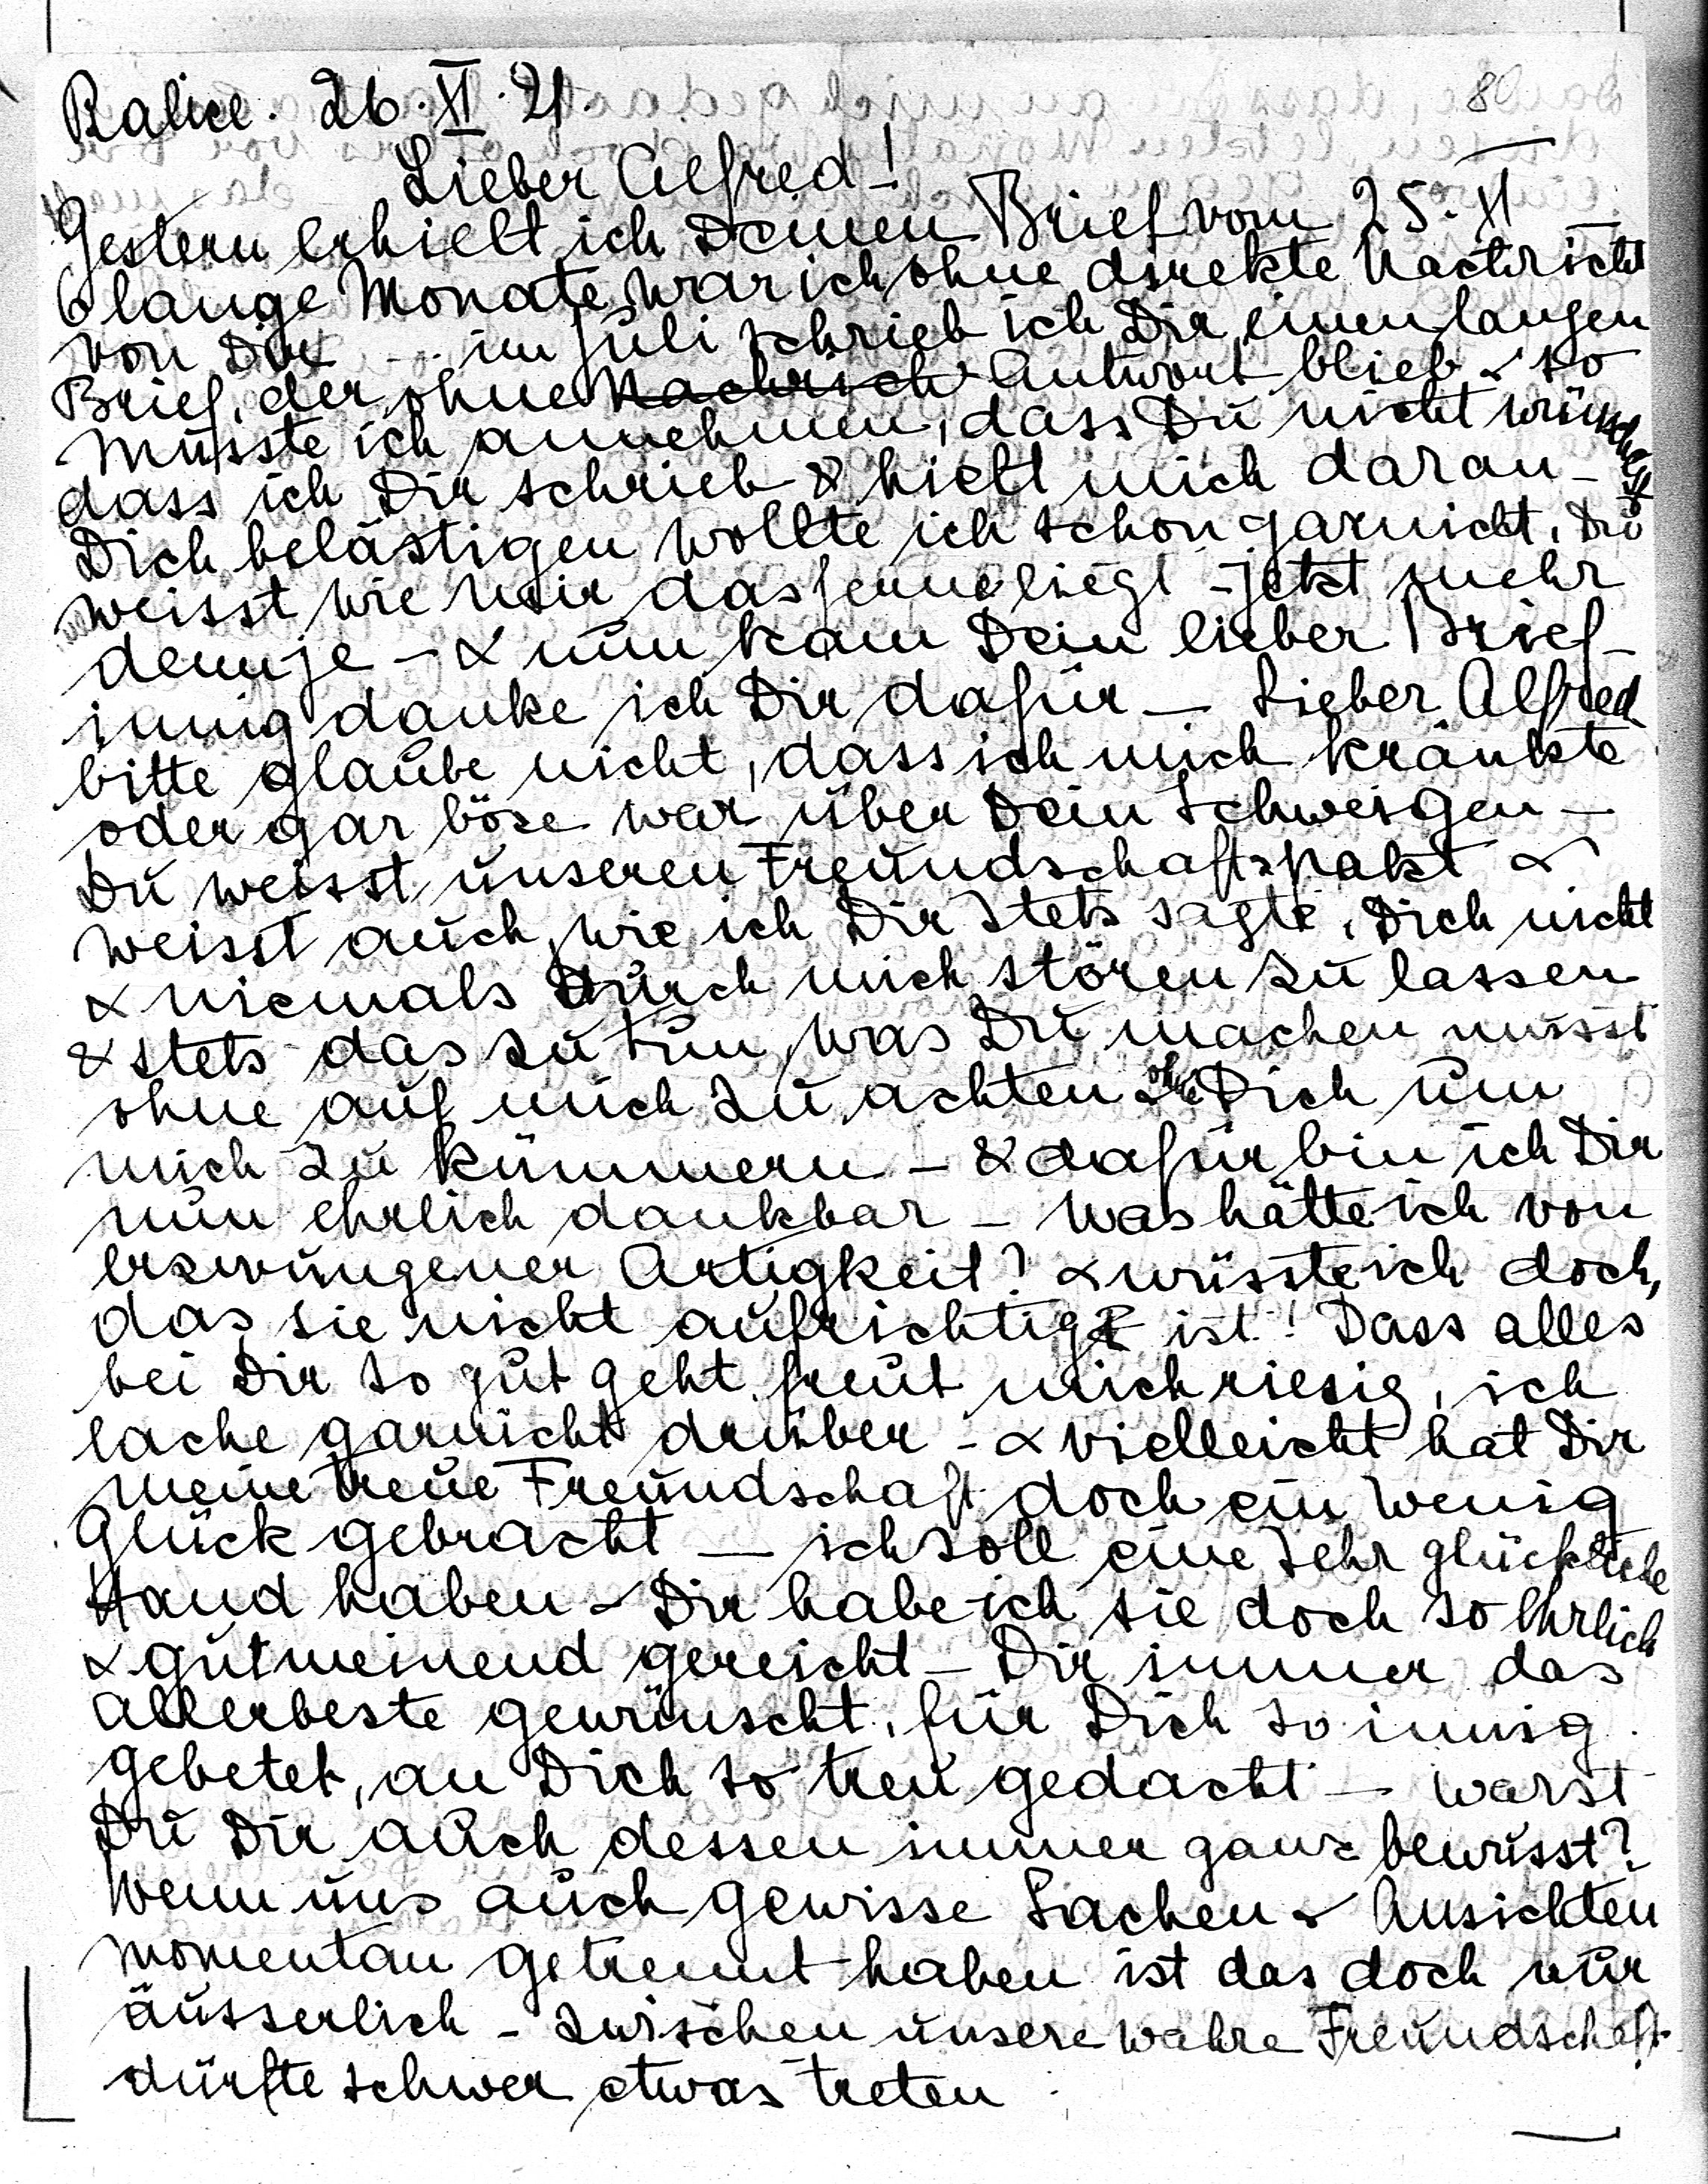 Ralice. 26. XI. 21.
80
Lieber Alfred!
Gestern erhielt ich Deinen Brief vom 25. XI –
6 lange Monate war ich ohne direkte Nachricht
von Dir – im Juli schrieb ich Dir einen langen
Brief, der ohne Nachrich Antwort blieb & so
musste ich annehmen, dass Du nicht wünschest
dass ich Dir schrieb & hielt mich daran –
Dich belästigen wollte ich schon garnicht, Du
weisst wie mir das ferne liegt – jetzt mehr
denn je – & nun kam Dein lieber Brief –
innig danke ich Dir dafür – Lieber Alfred
bitte glaube nicht, dass ich mich kränkte
oder gar böse war über Dein Schweigen –
Du weisst unseren Freundschaftspakt &
weisst auch, wie ich Dir stets sagte, Dich nicht
& niemals durch mich stören zu lassen
& stets das zu tun, was Du machen musst
ohne auf mich zu achten & ohne Dich um
mich zu kümmern – & dafür bin ich Dir
nun ehrlich dankbar – was hätte ich von
erzwungener Artigkeit? & wüsste ich doch,
das sie nicht aufrichtig ist! Dass alles
bei Dir so gut geht freut mich riesig, ich
lache garnicht drüber – & vielleicht hat Dir
meine treue Freundschaft doch ein wenig
Glück gebracht – ich soll eine sehr glückliche
Hand haben & Dir habe ich sie doch so ehrlich
& gutmeinend gereicht – Dir immer das
allerbeste gewünscht, für Dich so innig
gebetet, an Dich so treu gedacht – warst
Du Dir auch dessen immer ganz bewusst?
Wenn uns auch gewisse Sachen & Ansichten
momentan getrennt haben ist das doch nur
äusserlich – zwischen unsere wahre Freundschaft
dürfte schwer etwas treten